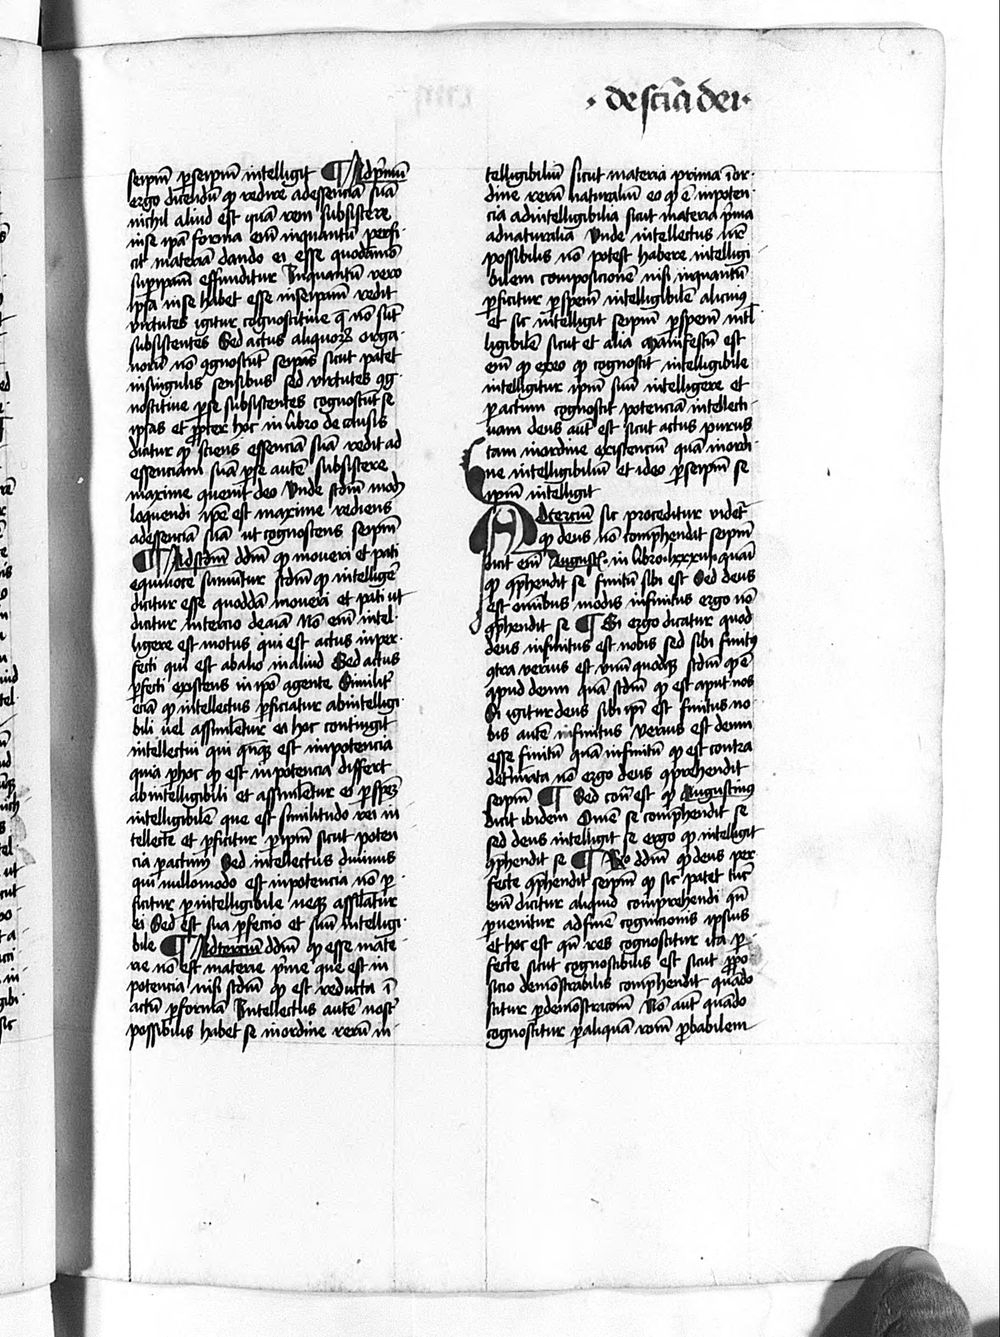 · de sciā dei ·
seipm̄ p seipm̄ intelligit ¶ Ad pͥmū
ergo dicendū qͥ redire ad essenciā suā
nichil aliud est quā rem subsistere
in se ipā forma em̄ inquantū perfi
cit materiā dando ei esse quodāmō
sup ipam̄ effunditur Inquantū vero
ipsa in se habet esse in seipam̄ redit
virtutes igitur cognoscitiue q̄ nō sūt
subsistentes Sed actus aliquoꝝ orga
norū nō ꝯgnoscūt seipas sicut patet
in singulis sensibus sed virtutes ꝯg
noscitiue p se subsistentes cognoscūt se
ipsas et ꝓpter hoc in libro de causis
dicitur qͥ sciens essenciam suā redit ad
essenciam suā p se autē subsistere
maxime quenit deo Unde scd̄m modū
loquendi ipē est maxime rediens
ad essenciā suā et cognoscens seipm̄
¶ Ad scd̄m dd̄m qͥ moueri et pati
equiuoce sumūtur scd̄m qͥ intelligē
dicitur esse quoddā moueri et pati ut
dicitur in tercio de aīa Nō em̄ intel
ligere est motus qui est actus inper
fecti qui est ab alio in aliud Sed actus
pfecti existens in ipō agente Similit̄
eciā qͥ intellectus pficiatur ab intelligi
bili uel assimiletur ei hoc contingit
intellectui qui qn̄qꝫ est in potencia
quia p hoc qͥ est in potencia differt
ab intelligibili et assimiletur ei p spēꝫ
intelligibilē que est similitudo rei in
tellecte et pficitur p ipm̄ sicut poten
cia p actum Sed intellectus diuinus
qui nullomodo est in potencia nō p
ficitur p intelligibile neqꝫ assilatur
ei Sed est sua pfeccio et suū intelligi
bile ¶ Ad tercium dd̄m qͥ esse mate
rie nō est materie pͥme que est in
potencia nisi scd̄m qͥ est reducta ī
actū p formā Intellectus autē nost̄
possibilis habet se in ordine rerū in
telligibiliū sicut materia prima ī or
dine rerū naturaliū eo qͥ ē in poten
cia ad intelligibilia sicut materia pͥma
ad naturalia Unde intellectus nr̄
possibilis nō potest habere intelligi
bilem composicionē nisi inquantū
pficitur p spem̄ intelligibilē alicuiꝰ
et sic intelligit seipm̄ p spem̄ intel
ligibilē sicut et alia Manifestū est
em̄ qͥ ex eo qͥ cognoscit intelligibile
intelligitur ipm̄ suū intelligere et
p actum cognoscit potenciā intellecti
uam deus aut̄ est sicut actus purus
tam in ordine existenciū quā in ordi
ne intelligibiliū et ideo p seipm̄ se
ipm̄ intelligit
Ad terciū sic proceditur videt̄
qͥ deus nō comphendit seipm̄
dicit em̄ Augusti in libro lxxxiii quā
qͥ ꝯphendit se finitū sibi est Sed deus
est omībus modis infinitus ergo nō
ꝯphendit se ¶ Si ergo dicatur quod
deus infinitus est nobis sed sibi finitꝰ
ꝯtra verius est vnū quodqꝫ scd̄m qͥ ē
apud deum quā scd̄m qͥ est aput nos
Si igitur deus sibi ipi est finitus no
bis autē infinitus verius est deum
esse finitū quā infinitū qͥ est contra
det̄mīata nō ergo deus ꝯprehendit
seipm̄ ¶ Sed con̄ est qͥ Augustinus
dicit ibidem Om̄e qͥ comphendit se
sed deus intelligit se ergo qͥ intelligit
ꝯphendit se ¶ Ro dd̄m qͥ deus per
fecte ꝯphendit seipm̄ qͥ sic patet tūc
em̄ dicitur aliquid comprehendi qn̄
puenitur ad finē cognicionis ipsius
et hoc est qn̄ res cognoscitur ita p
fecte sicut cognoscibilis est sicut ꝓpo
sicio demōstrabilis comphendit quādo
scitur p demōstracionē Nō aut̄ quādo
cognoscitur p aliquā ronē ꝓbabilem